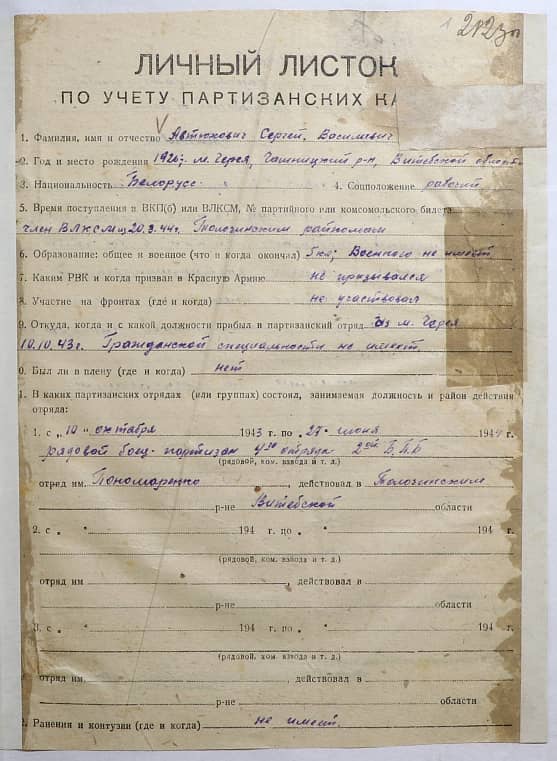 2123
ЛИЧНЫЙ ЛИСТОК
ПО УЧЕТУ ПАРТИЗАНСКИХ КА
1. Фамилия, имя и отчество Автюхович Сергей, Василиевич
2. Год и место рождения 1926г. м. Черея, Чашницкий р-н, Витебской област
3. Национальность Белорусс. 4. Соцположение рабочий
5. Время поступления в ВКП(б) или ВЛКСМ, № партийного или комсомольского билета
член ВЛКСМ 20.3.44г. Толочинским райкомом
6. Образование: общее и военное (что и когда окончил) 5кл; Военного не имеет
7. Каким РВК и когда призван в Красную Армию не призывался
8. Участие на фронтах (где и когда) не участвовал
9. Откуда, когда и с какой должности прибыл в партизанский отряд Из м. Черея
10.10.43г. Гражданской специальности не имеет
0. Был ли в плену (где и когда) нет
1. В каких партизанских отрядах (или группах) состоял, занимаемая должность и район действия
отряда:
1. с „10" октября 1943 г. по „27" июня 1944 г.
рядовой боец-партизан 4го отряда 2ой Б.П.Б
(рядовой, ком. взвода и т. д.)
отряд им. Пономаренко, действовал в Толочинским
р-не Витебской области
2. с „ " 194 г. по „ " 194 г.
(рядовой, ком. взвода и т. д.)
отряд им , действовал в
р-не области
3. с „ " 194 г. по „ " 194 г.
(рядовой, ком. взвода и т. д.)
отряд им. , действовал в
р-не области
2. Ранения и контузии (где и когда) не имеет.